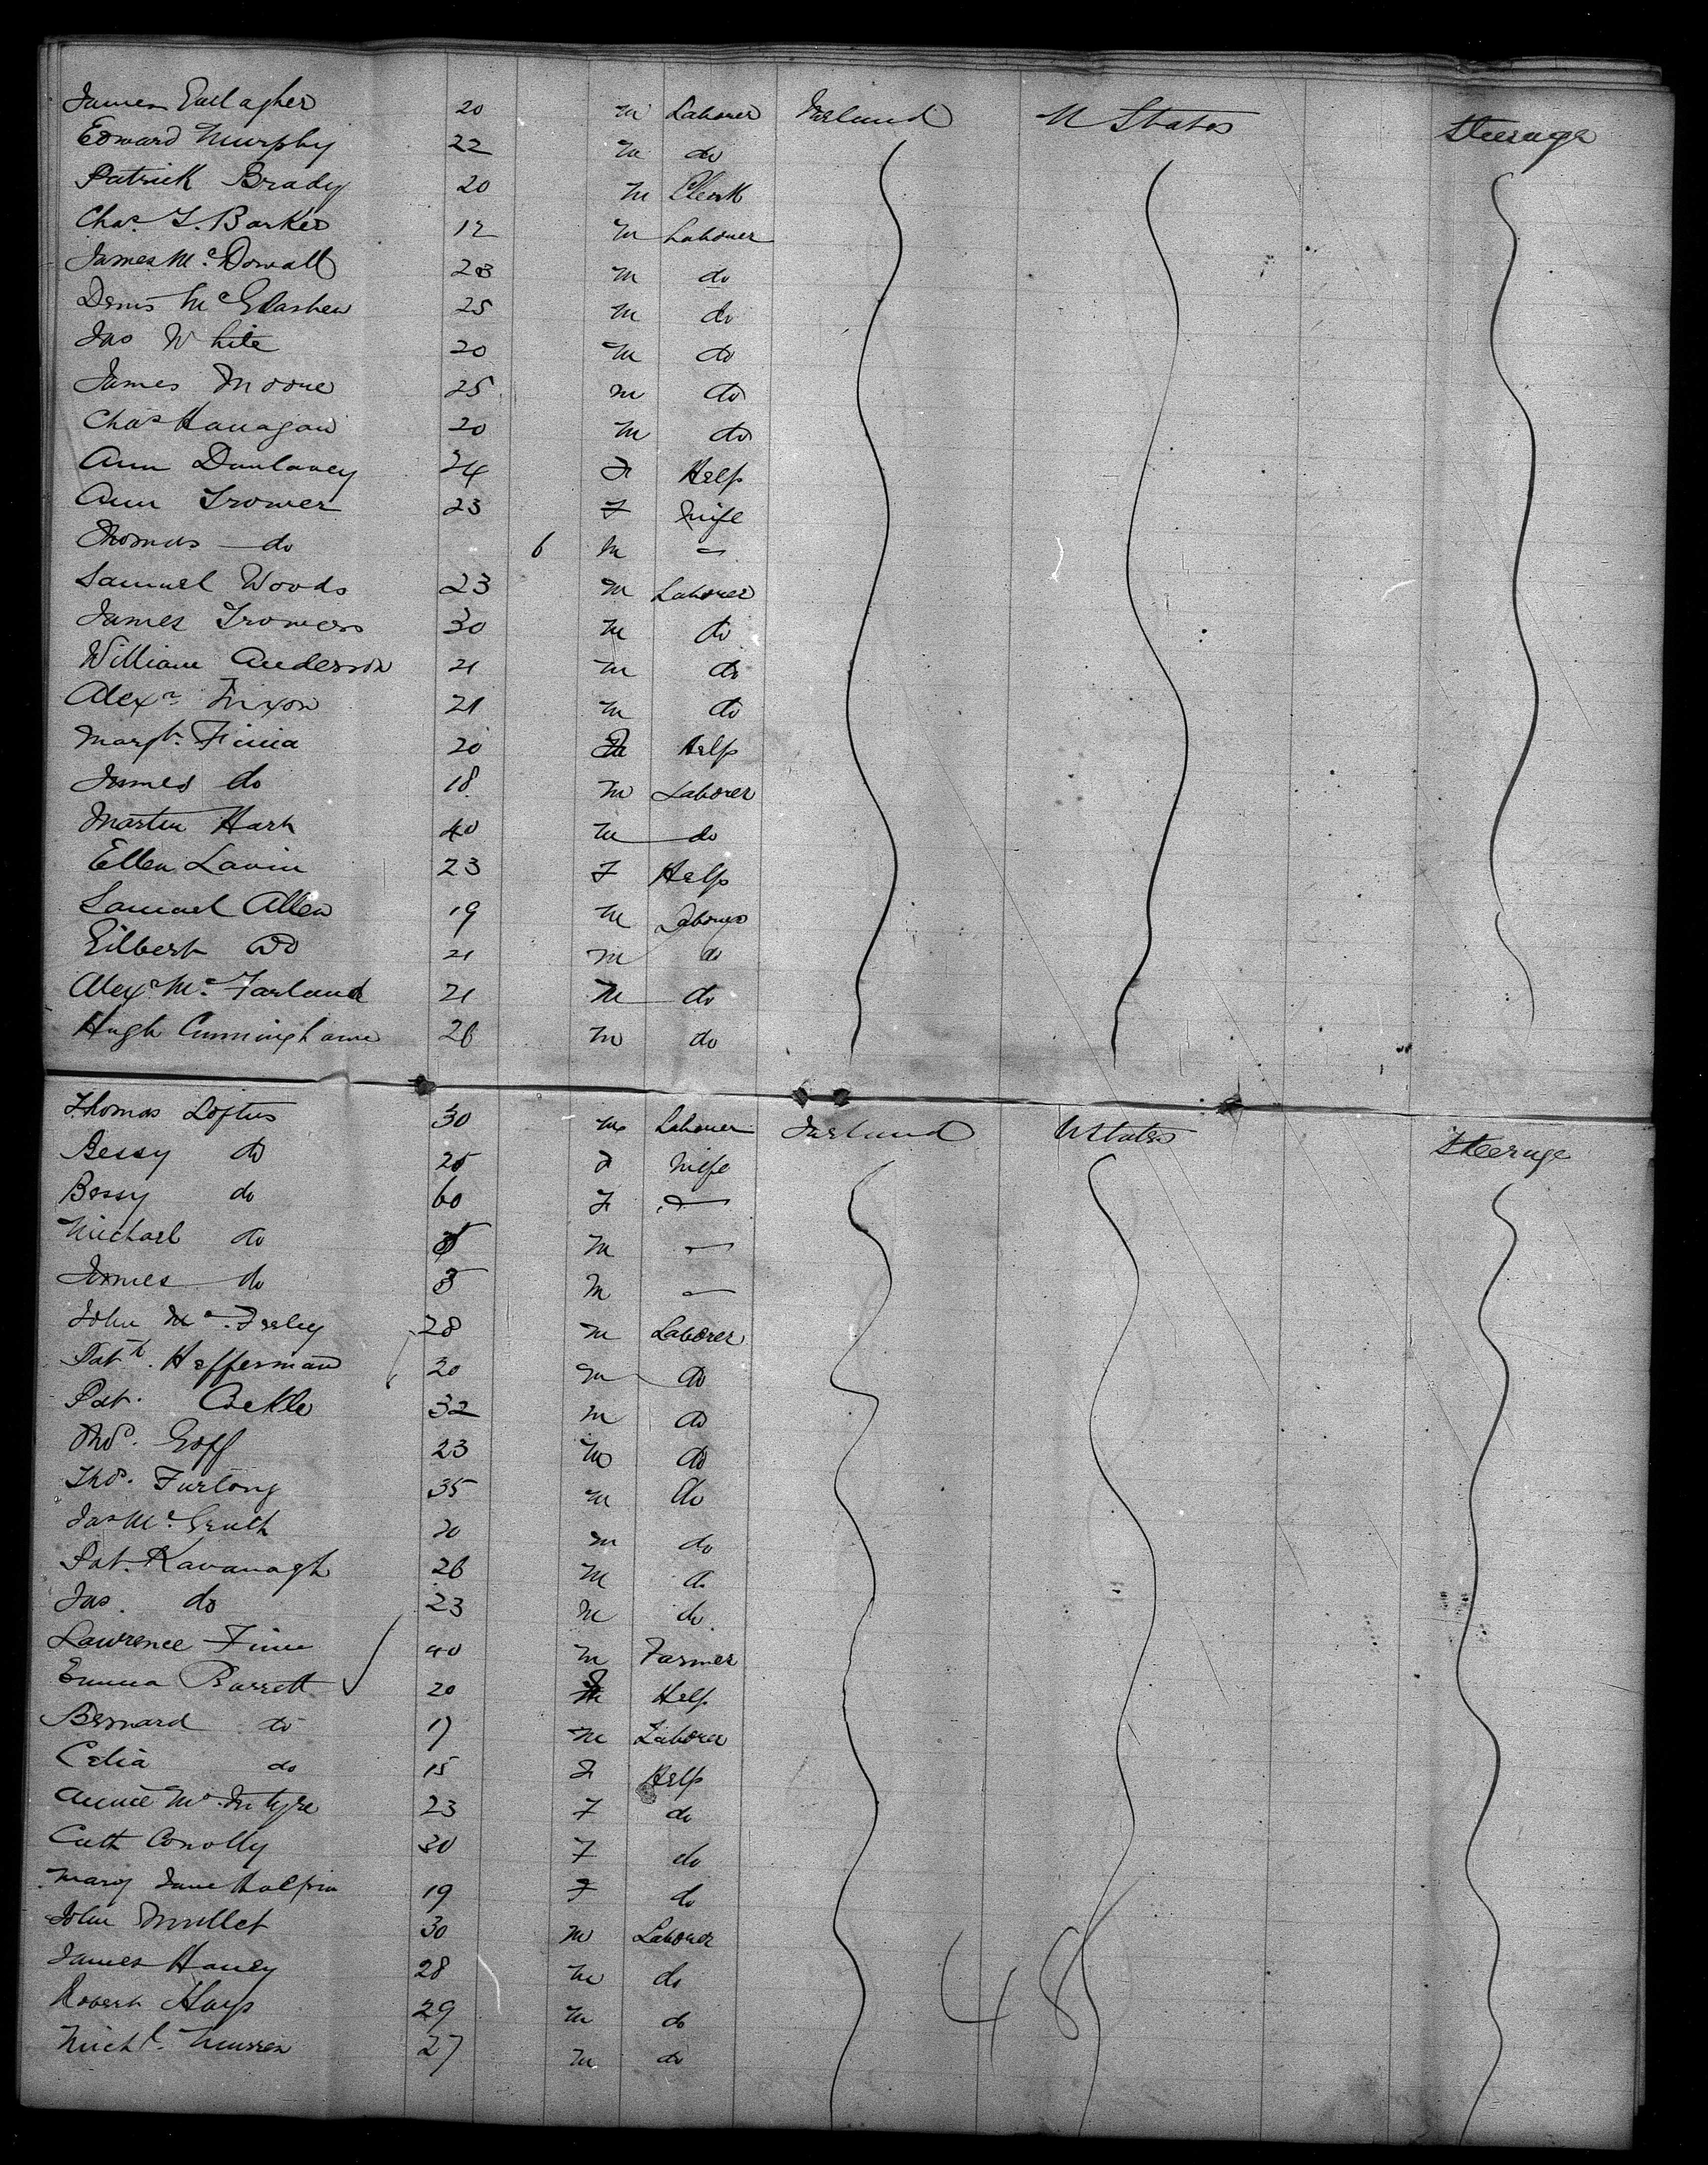 James Gallagher 20 m Laborer Ireland U States Steerage
Edward Murphy 22 m do
Patrick Brady 20 m Clerk
Chas. T. Barker 12 m Laborer
James McDowall 23 m do
Denis McGlashen 25 m do
Jas White 20 m do
James Moore 25 m do
Chas Hanagan 20 m do
Ann Dunlavey 24 F Help
Ann Tromer 23 F Wife
Thomas do 6 m —
Samuel Woods 23 m Laborer
James Tromers 30 m do
William Anderson 21 m do
Alexr. Nixon 21 m do
Margt. Finia 20 F Help
James do 18 m Laborer
Martin Hart 40 m do
Ellen Lavin 23 F Help
Samuel Allen 19 m Laborer
Gilbert do 21 m do
Alex McFarland 21 m do
Hugh Cunninghame 26 m do
Thomas Loftus 30 m Laborer Ireland U States Steerage
Bessy do 25 F Wife
Bessy do 60 F —
Michael do m —
James do 3 m —
John Mc.Feeley 28 m Laborer
Patk. Heffernan 20 m do
Pat. Cockle 32 m do
Thos. Goff 23 m do
Thos. Furlong 35 m do
Jas Mc.Grath 20 m do
Pat. Kavanagh 26 m do
Jas. do 23 m do
Lawrence Finn 40 m Farmer
Emma Barrett 20 F Help
Bernard do 17 m Laborer
Celia do 15 F Help
Annie Mc.Intyre 23 F do
Cath Conolly 30 F do
Mary Jane Halpin 19 F do
John Mullet 30 m Laborer
James Haney 28 m do
Robert Hays 29 m do
Michl. Murren 27 m do
48